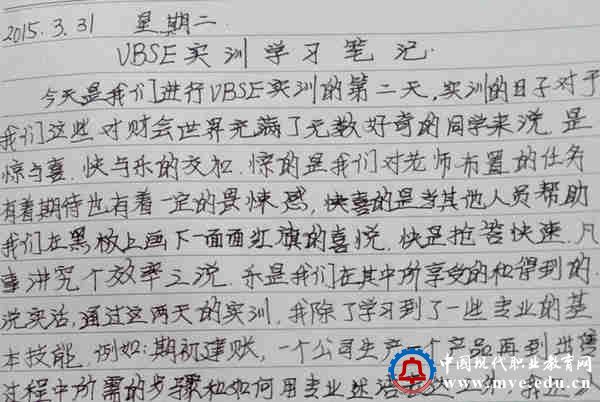 2015.3.31 星期二
VBSE实训学习笔记.
今天是我们进行VBSE实训的第二天,实训的日子对于
我们这些对财会世界充满了无数好奇的同学来说,是
惊与喜,快与乐的交加.惊的是我们对老师布置的任务
有着期待也有着一定的畏惧感,快喜的是当其他人员帮助
我们在黑板上画下一面面红旗的喜悦.快是抢答快速,凡
事讲究个效率之说.乐是我们在其中所享受的和得到的.
说实话,通过这两天的实训,我除了学习到了一些专业的基
本技能,例如:期初建账,一个公司生产一个产品再到
过程中所需的步骤和如何用专业
中国现代职业教育网
www.mve.edu.cn